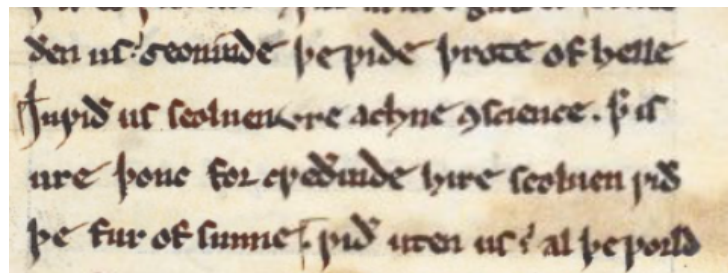 ðen us: ȝeoniinde þe ƿide þrote of helle
Inƿið us seoluen vre achne ꝯscience. ꝥ is
ure þonc for cƿeðinde hire seoluen ƿið
þe fur of sunne. ƿið uten us: al þe ƿorld